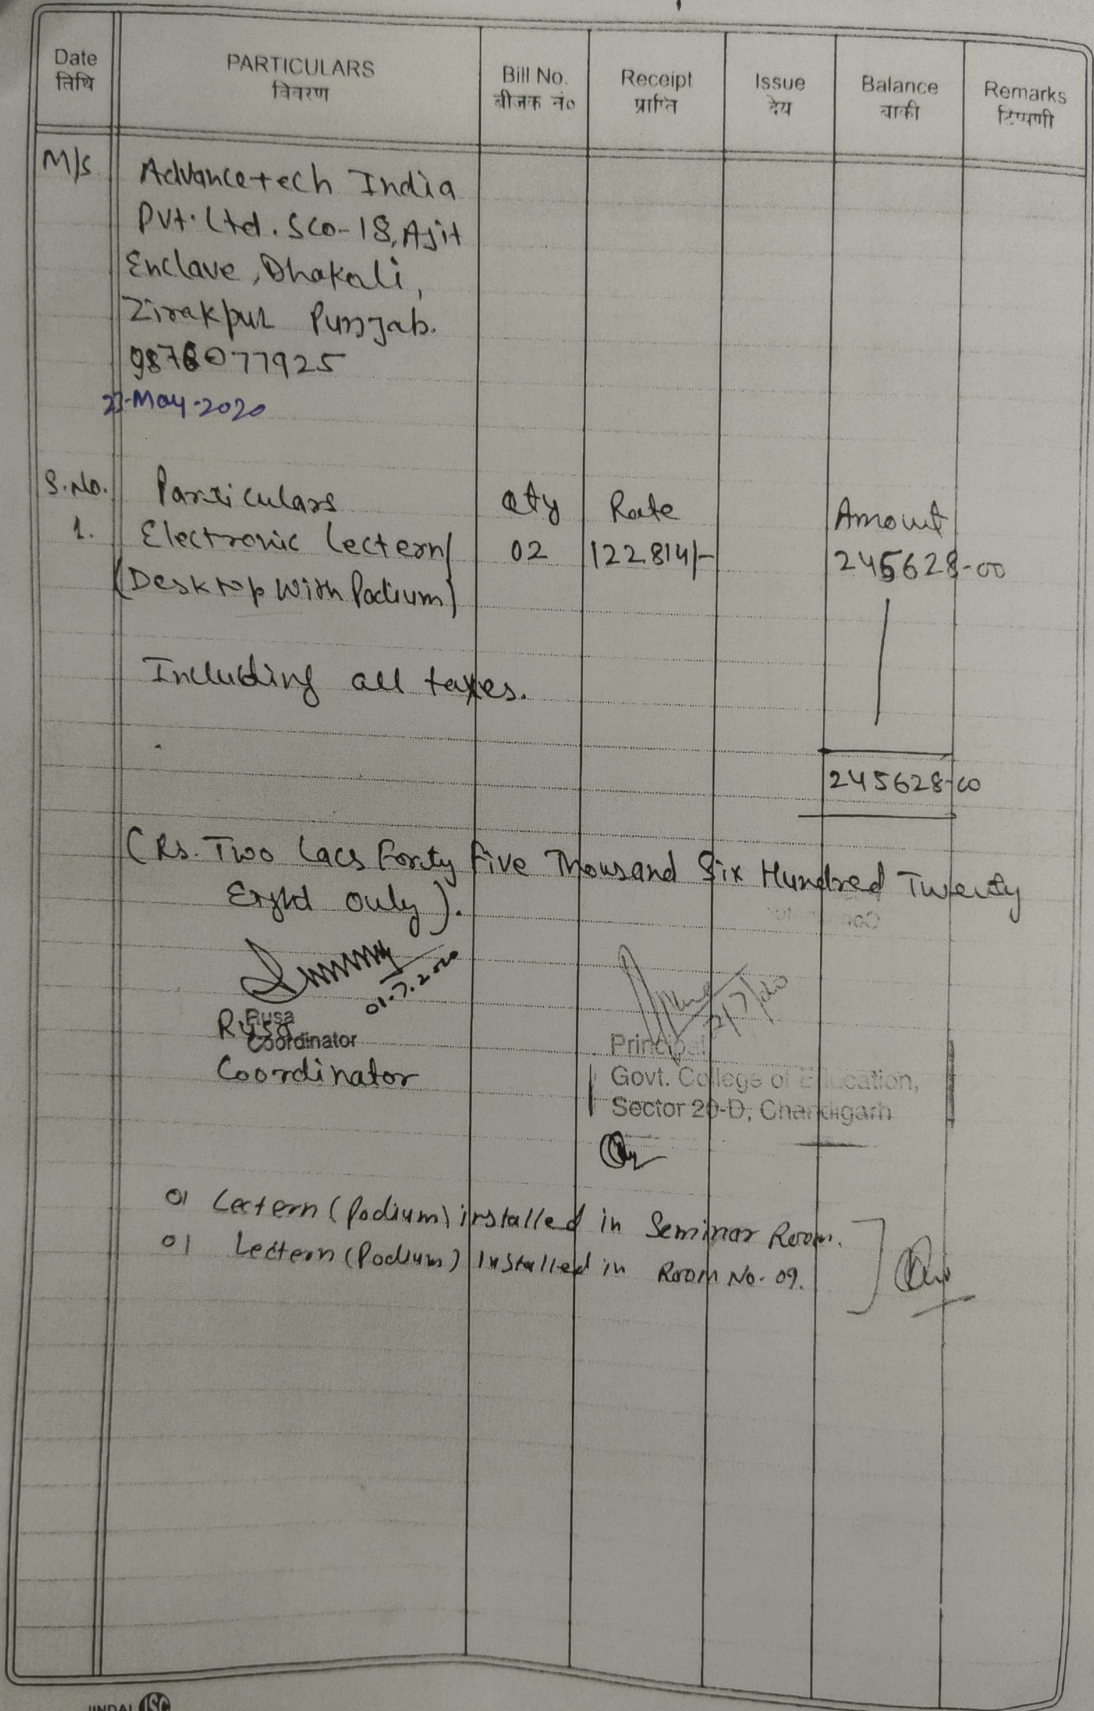 Date PARTICULARS Bill No. Receipt Issue Balance Remarks
तिथि विवरण बीजक नं० प्राप्ति देय बाकी टिप्पणी
M/s Advancetech India
Pvt. Ltd. SCO-18, Ajit
Enclave, Dhakali,
Zirakpur Punjab.
9876077925
-May-2020
S.No. Particulars Qty Rate Amount
1. Electronic Lectern 02 122814/- 245628-00
(Desktop With Podium)
Including all taxes.
245628-00
(Rs. Two Lacs Forty Five Thousand Six Hundred Twenty
Eight only).
01.7.2020
2/7/20
Rusa
Rusa
Coordinator
Coordinator
Principal
Govt. College of Education,
Sector 20-D, Chandigarh
01 Lectern (Podium) installed in Seminar Room.
01 Lectern (Podium) Installed in Room No. 09.
JINDAL JSC